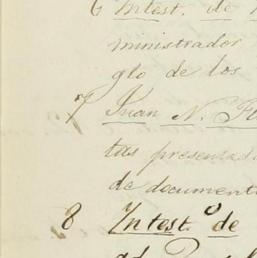 6 Intest. de
ministrador
glo de los
7 Juan N.
tas presentad
de document
8 Intest.º de